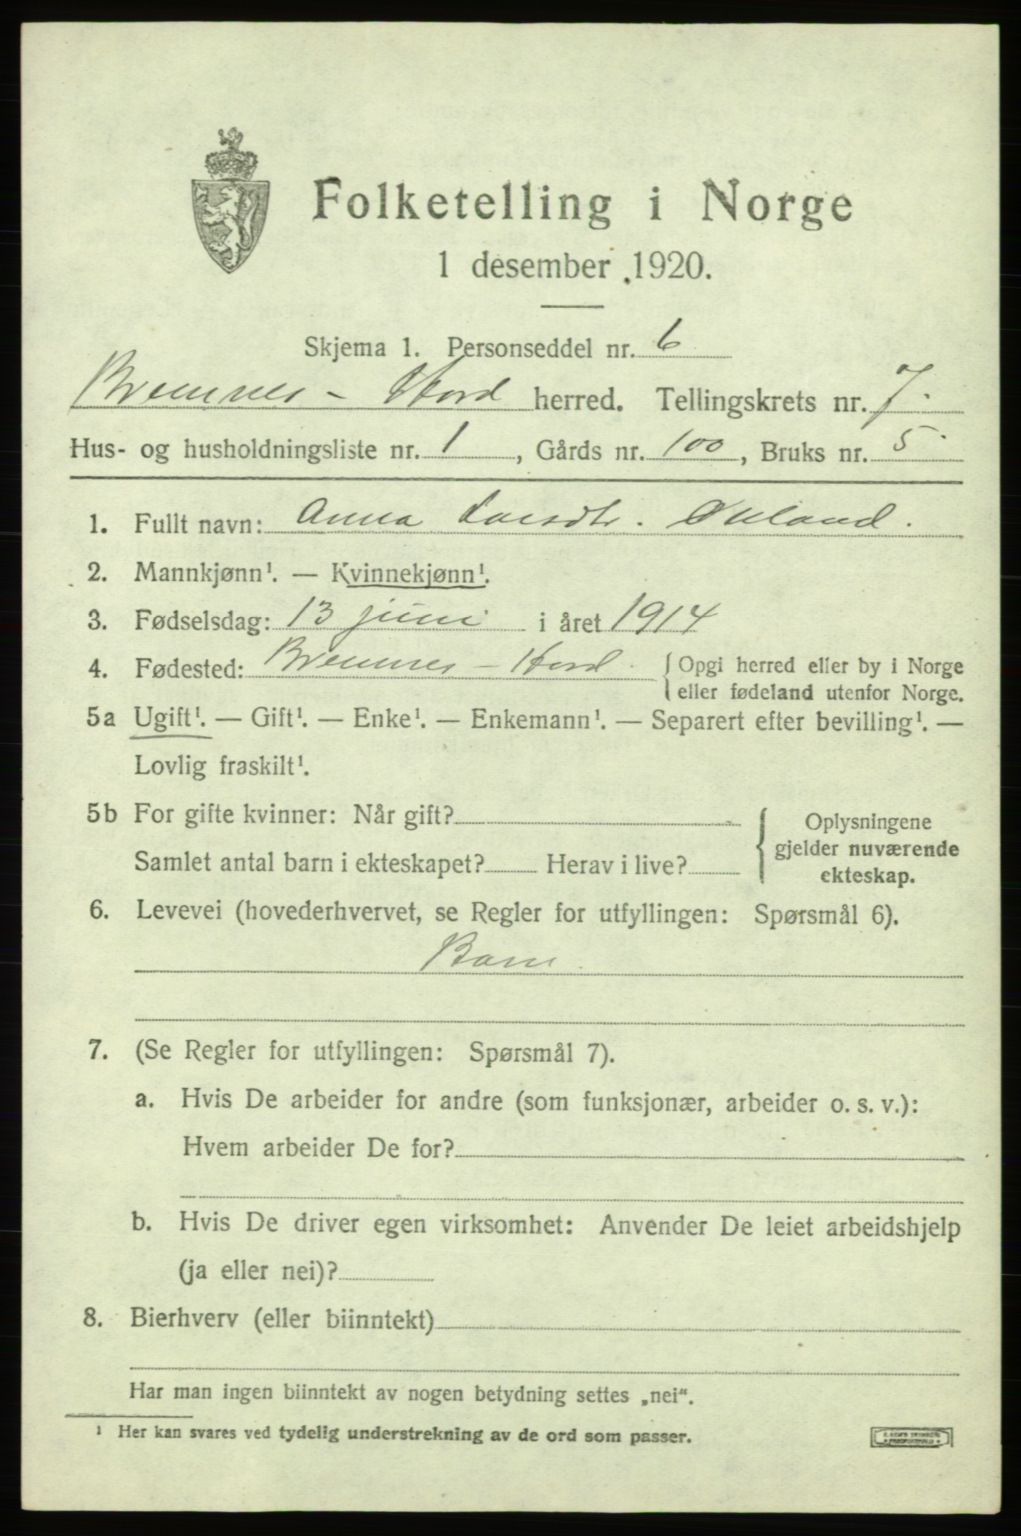 Folketelling i Norge
1 desember 1920.
Skjema 1. Personseddel nr. 6
Bremnes - Hord herred. Tellingskrets nr. 7.
Hus- og husholdningsliste nr. 1, Gårds nr. 100, Bruks nr. 5
1. Fullt navn: Anna Larsdtr.
2. Mannkjønn¹. — Kvinnekjønn¹.
3. Fødselsdag: 13 juni i året 1914
4. Fødested: Bremnes - Hord. Opgi herred eller by i Norge
eller fødeland utenfor Norge.
5a Ugift¹. — Gift¹. — Enke¹. — Enkemann¹. — Separert efter bevilling¹. —
Lovlig fraskilt¹.
5b For gifte kvinner: Når gift?
Samlet antal barn i ekteskapet? Herav i live?
Oplysningene
gjelder nuværende
ekteskap.
6. Levevei (hovederhvervet, se Regler for utfyllingen: Spørsmål 6).
Barn
7. (Se Regler for utfyllingen: Spørsmål 7).
a. Hvis De arbeider for andre (som funksjonær, arbeider o. s. v.):
Hvem arbeider De for?
b. Hvis De driver egen virksomhet: Anvender De leiet arbeidshjelp
(ja eller nei)?
8. Bierhverv (eller biinntekt)
Har man ingen biinntekt av nogen betydning settes „nei“.
¹ Her kan svares ved tydelig understrekning av de ord som passer.